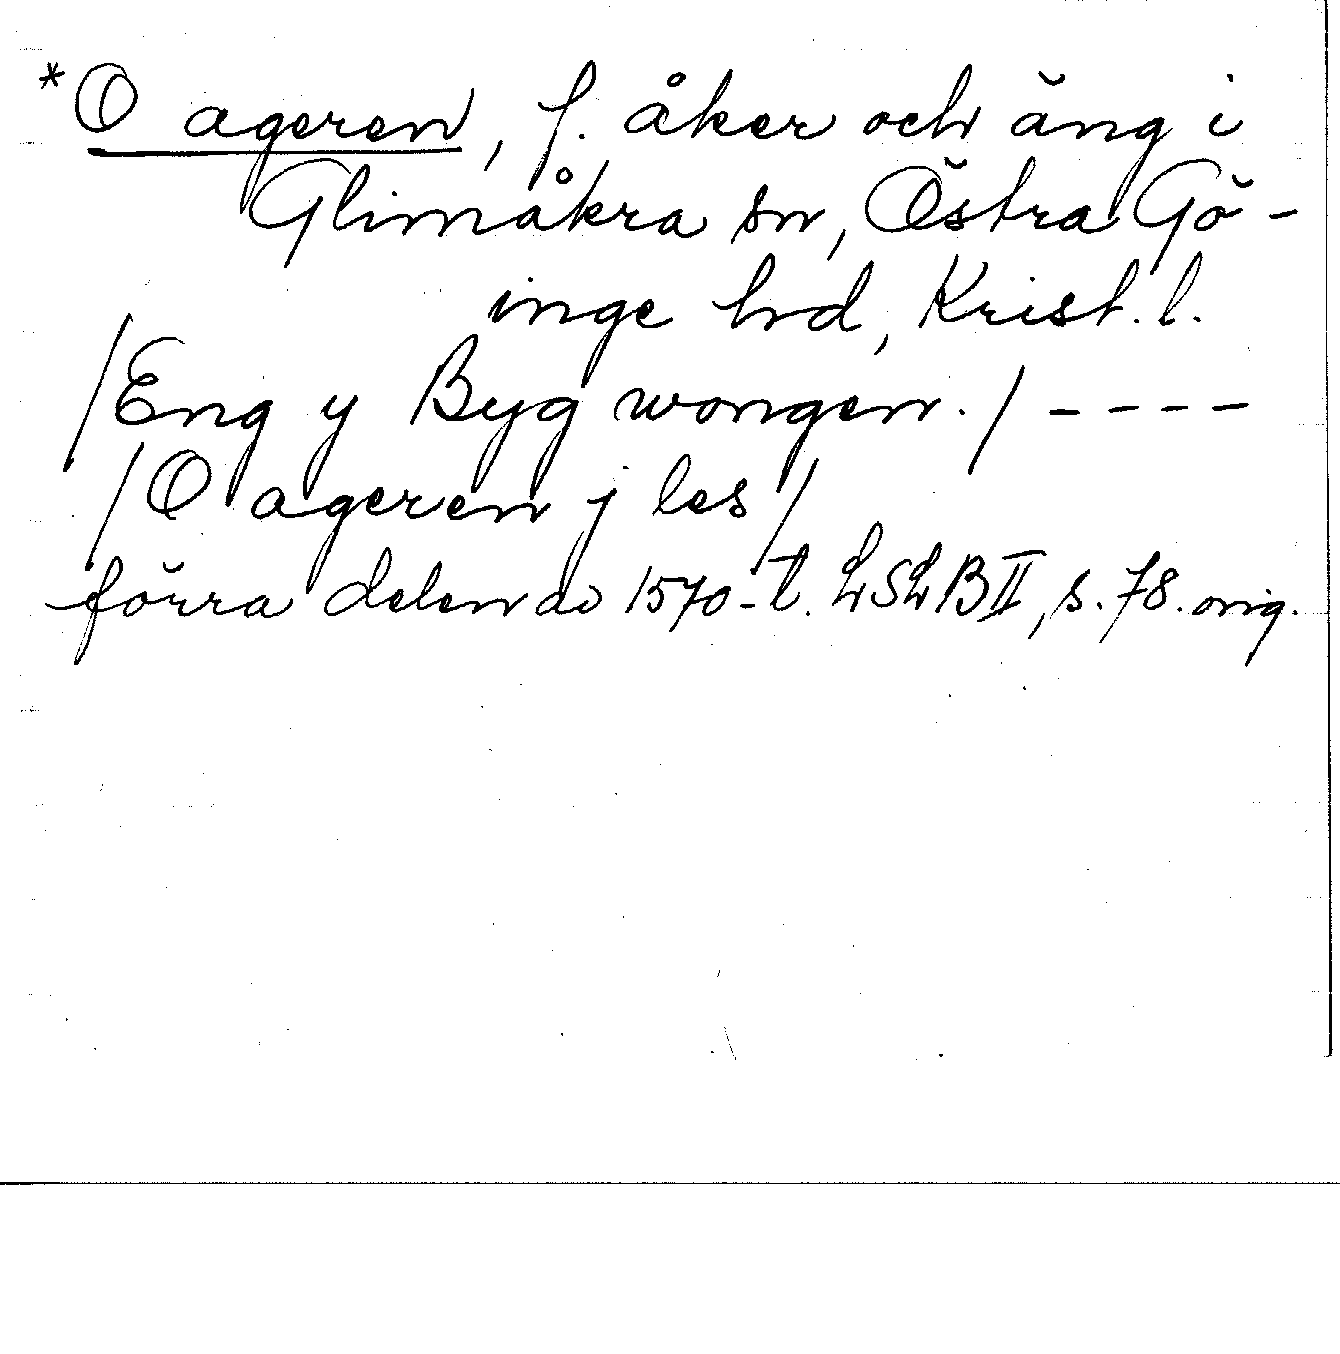 *O ageren, f. åker och äng i
Glimåkra sn, Östra Gö-
inge hd, Krist. l.
/Eng y Byg wongen./ - - - -
/O ageren j les/
förra delen av 1570-t. LSLB II, s. 78. orig.